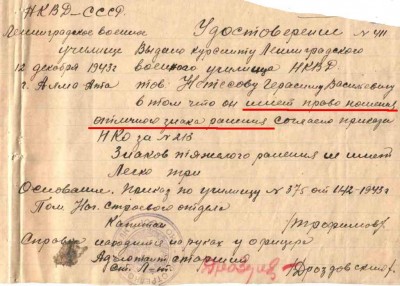 НКВД-СССР
Ленинградское военное Удостоверение № 411
училище Выдано курсанту Ленинградского
12 декабря 1943г военного училища НКВД
г. Алма Ата тов. Герасиму Васильевичу
в том что он имеет право ношения
отличного знака ранения согласно приказа
НКО за №213
Знаков тяжелого ранения не имеет
Легко три
Основание. Приказ по училищу №375 от 1943г
Пом. Нач. строевого отдела
Капитан Трофимов
Справка находится на руках у офицера
Адъютант старший
Ст. Л-т. Дроздовский